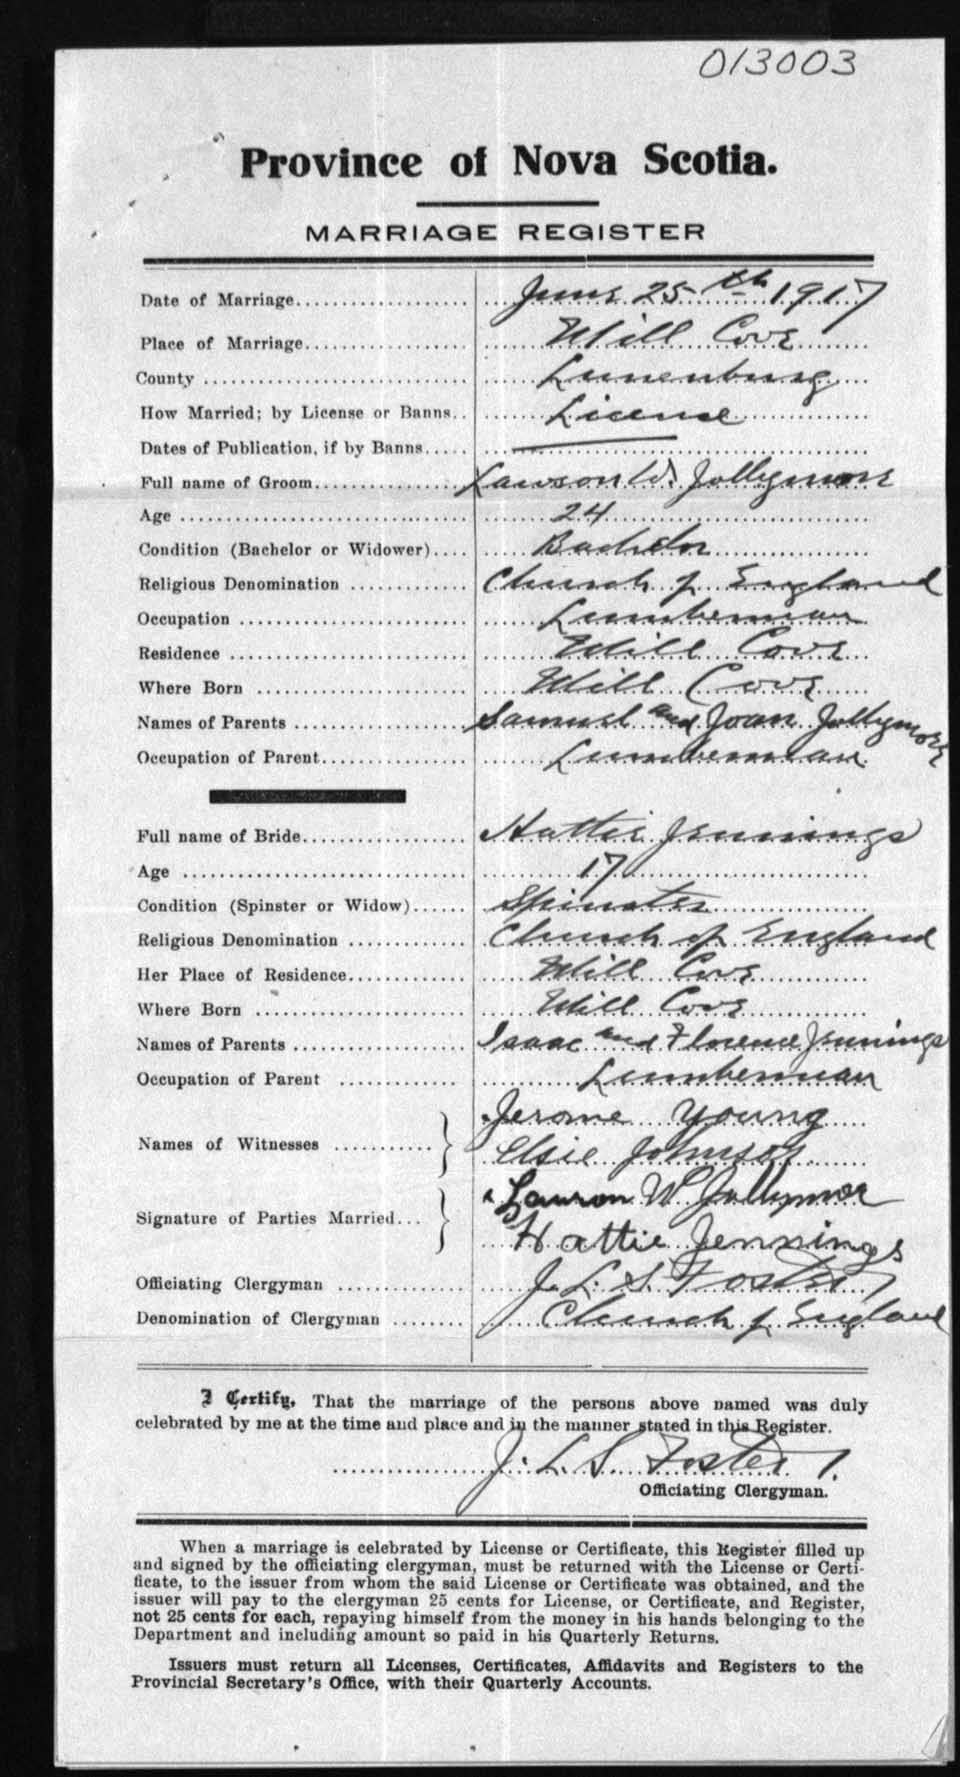 013003
Province of Nova Scotia.
MARRIAGE REGISTER
Date of Marriage.................... June 25th 1917
Place of Marriage................... Mill Cove
County ............................. Lunenburg
How Married; by License or Banns.. License
Dates of Publication, if by Banns.....
Full name of Groom.................. Lawson W. Jollymore
Age ................................ 24
Condition (Bachelor or Widower).... Bachelor
Religious Denomination ............. Church of England
Occupation ......................... Lumberman
Residence .......................... Mill Cove
Where Born ......................... Mill Cove
Names of Parents ................... Samuel and Joan Jollymore
Occupation of Parent................ Lumberman
Full name of Bride.................. Hattie Jennings
Age ................................ 17
Condition (Spinster or Widow)...... Spinster
Religious Denomination ............. Church of England
Her Place of Residence.............. Mill Cove
Where Born ......................... Mill Cove
Names of Parents ................... Isaac and Florence Jennings
Occupation of Parent ............... Lumberman
Names of Witnesses ............ } Jerome Young
Elsie Johnson
Signature of Parties Married... } Lawson W Jollymor
Hattie Jennings
Officiating Clergyman .............. J. L. S. Foster
Denomination of Clergyman ........ Church of England
I Certify, That the marriage of the persons above named was duly
celebrated by me at the time and place and in the manner stated in this Register.
J. L. S. Foster
Officiating Clergyman.
When a marriage is celebrated by License or Certificate, this Register filled up
and signed by the officiating clergyman, must be returned with the License or Certi-
ficate, to the issuer from whom the said License or Certificate was obtained, and the
issuer will pay to the clergyman 25 cents for License, or Certificate, and Register,
not 25 cents for each, repaying himself from the money in his hands belonging to the
Department and including amount so paid in his Quarterly Returns.
Issuers must return all Licenses, Certificates, Affidavits and Registers to the
Provincial Secretary's Office, with their Quarterly Accounts.